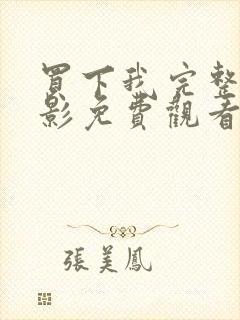 買下我完整
影免費觀看
張美鳳